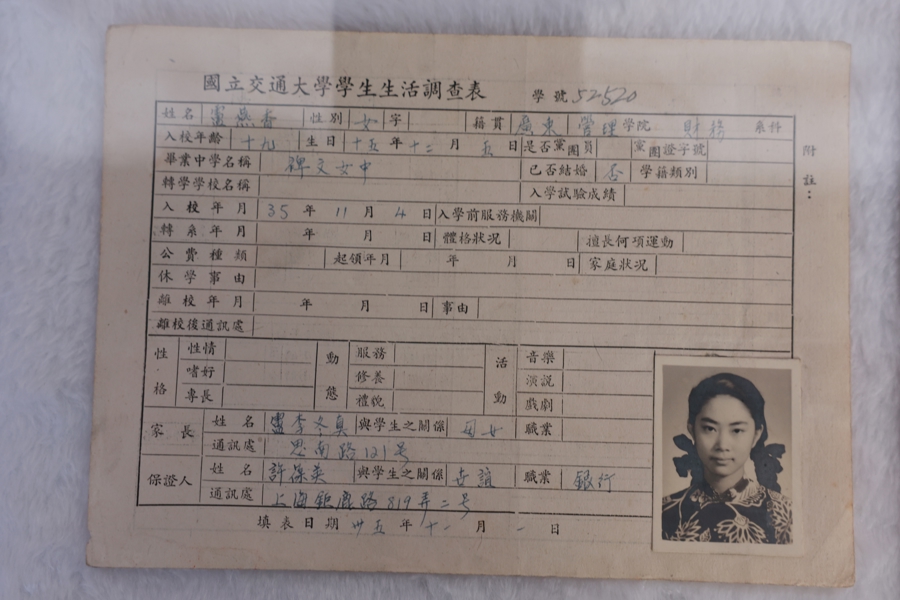 國立交通大學學生生活調查表 學號 52520
姓名 盧燕香 性別 女 字 籍貫 廣東 管理 學院 財務 系科
入校年齡 十九 生日 十五年十二月五日 是否黨團員 黨團證字號
畢業中學名稱 碑文女中 已否結婚 否 學籍類別
轉學學校名稱 入學試驗成績
入校年月 35年11月4日 入學前服務機關
轉系年月 年 月 日 體格狀况 擅長何項運動
公費種類 起領年月 年 月 日 家庭狀况
休學事由
離校年月 年 月 日 事由
離校後通訊處
性格 性情 動態 服務 活動 音樂
嗜好 修養 演説
專長 禮貌 戲劇
家長 姓名 盧李冬真 與學生之關係 母女 職業
通訊處 思南路121号
保證人 姓名 許葆英 與學生之關係 世誼 職業 銀行
通訊處 上海鉅鹿路819弄二号
填表日期 卅五年十一月一日
附註：